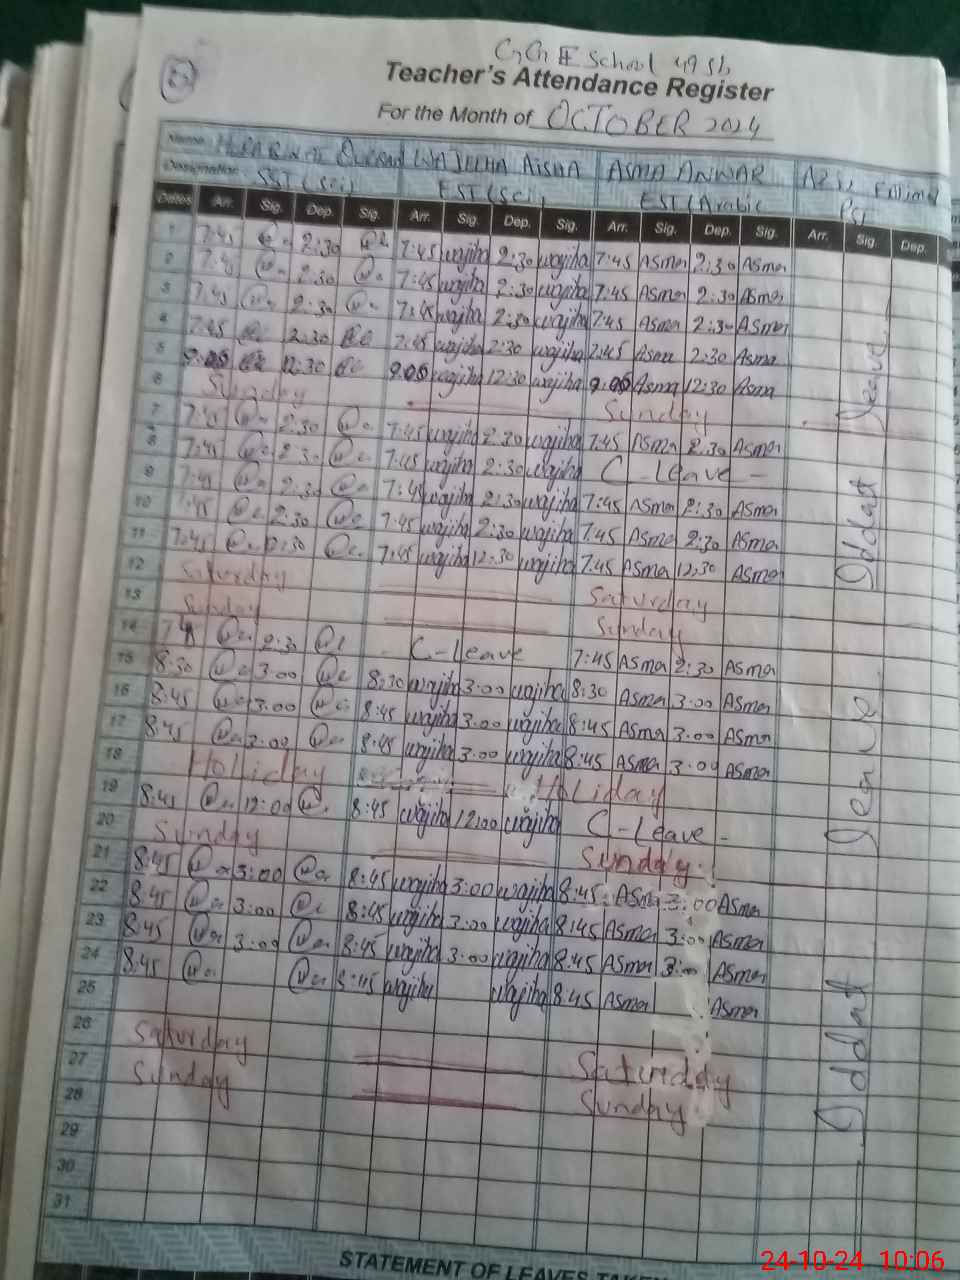 School 49 Sb
Teacher's Attendance Register
For the Month of OCTOBER 2024
Name WAJEEHA AISHA ASMA ANWAR
Designation SST (Sci) EST (Sci) EST (Arabic PST
Dates Arr. Sig. Dep. Sig. Arr. Sig. Dep. Sig. Arr. Sig. Dep. Sig. Arr. Sig. Dep.
1 7:45 2:30 7:45 wajiha 2:30 wajiha 7:45 Asma 2:30 Asma
2 7:45 2:30 7:45 wajiha 2:30 wajiha 7:45 Asma 2:30 Asma
3 7:45 2:30 7:45 wajiha 2:30 wajiha 7:45 Asma 2:30 Asma
4 7:45 2:30 7:45 wajiha 2:30 wajiha 7:45 Asma 2:30 Asma
5 9:05 12:30 9:05 wajiha 12:30 wajiha 9:05 Asma 12:30 Asma
6 Sunday Sunday
7 7:45 2:30 7:45 wajiha 2:30 wajiha 7:45 Asma 2:30 Asma
8 7:45 2:30 7:45 wajiha 2:30 wajiha C-Leave -
9 7:45 2:30 7:45 wajiha 2:30 wajiha 7:45 Asma 2:30 Asma
10 7:45 2:30 7:45 wajiha 2:30 wajiha 7:45 Asma 2:30 Asma
11 7:45 12:30 7:45 wajiha 12:30 wajiha 7:45 Asma 12:30 Asma
12 Saturday Saturday
13 Sunday Sunday
14 2:30 C-Leave 7:45 Asma 2:30 Asma
15 8:30 3:00 8:30 wajiha 3:00 wajiha 8:30 Asma 3:00 Asma
16 8:45 3:00 8:45 wajiha 3:00 wajiha 8:45 Asma 3:00 Asma
17 8:45 3:00 8:45 wajiha 3:00 wajiha 8:45 Asma 3:00 Asma
18 Holliday Holiday
19 8:45 12:00 8:45 wajiha 12:00 wajiha C-Leave -
20 Sunday Sunday
21 8:45 3:00 8:45 wajiha 3:00 wajiha 8:45 Asma 3:00 Asma
22 8:45 3:00 8:45 wajiha 3:00 wajiha 8:45 Asma 3:00 Asma
23 8:45 3:00 8:45 wajiha 3:00 wajiha 8:45 Asma 3:00 Asma
24 8:45 8:45 wajiha wajiha 8:45 Asma Asma
25
26 Saturday Saturday
27 Sunday Sunday
28
29
30
31
Iddat leave
Iddat leave
STATEMENT OF LEAVES TAKEN
24-10-24 10:06